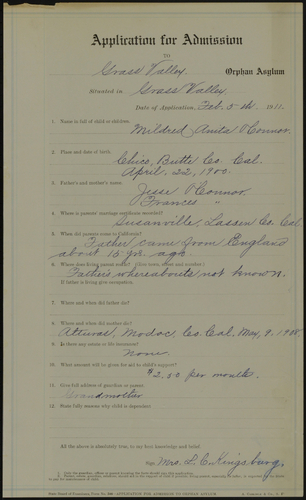 Application for Admission
TO
Grass Valley Orphan Asylum
Situated in Grass Valley
Date of Application, Feb. 5th, 1911.
1. Name in full of child or children.
Mildred Anita O'Connor
2. Place and date of birth.
Chico, Butte Co. Cal.
April 22, 1900.
3. Father's and mother's name.
Jesse O'Connor
Frances "
4. Where is parents' marriage certificate recorded?
Susanville, Lassen Co. Cal.
5. When did parents come to California?
Father came from England
about 15 yr. ago
6. Where does living parent reside? (Give town, street and number)
Father's whereabouts not known.
If father is living give occupation.
7. Where and when did father die?
8. Where and when did mother die?
Alturas, Modoc, Co. Cal. May, 9, 1908.
9. Is there any estate or life insurance?
None
10. What amount will be given for aid to child's support?
$2.50 per month.
11. Give full address of guardian or parent
Grandmother
12. State fully reasons why child is dependent
All the above is absolutely true, to my best knowledge and belief.
Sign, Mrs. L. C. Kingsbury